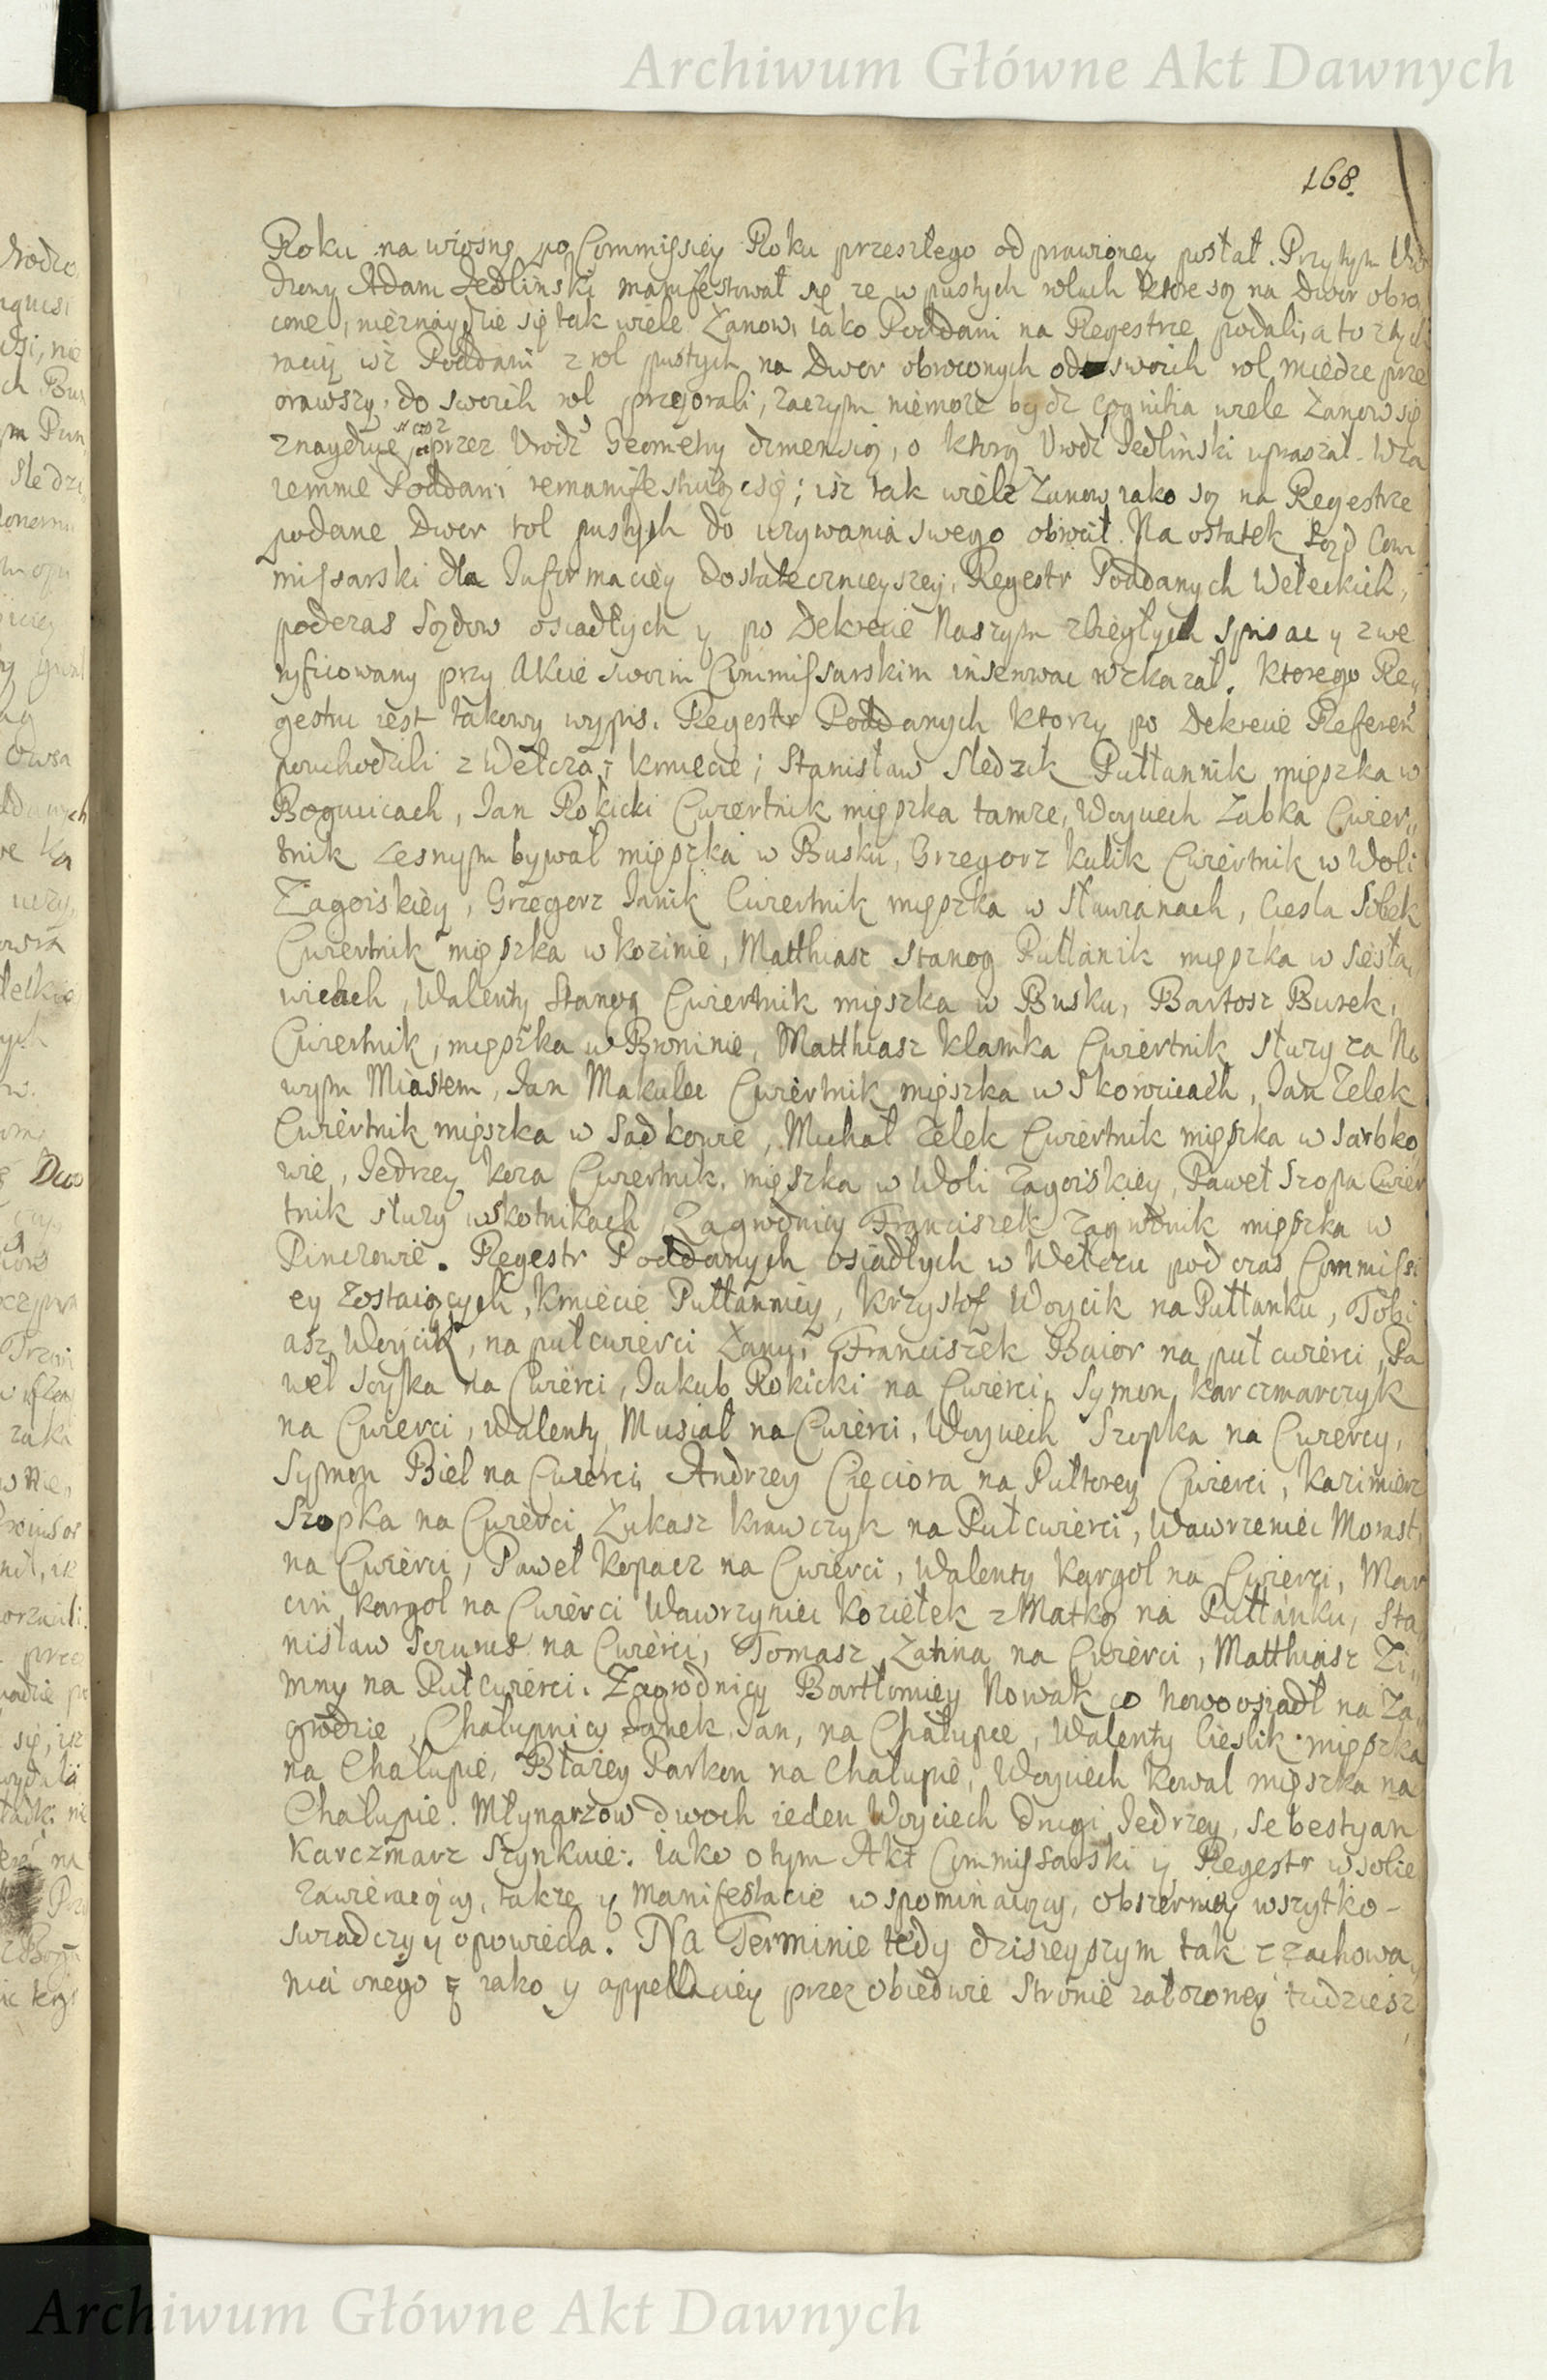 Archiwum Główne Akt Dawnych
168.
Roku na wiosnę po Commissiey Roku przeszłego odprawioney postał. Przytym Uro
dzony Adam Jedlinski manifestował się ze w pustych rolach ktore są na Dwor obro
cone, nieznaydzie się tak wiele Łanow, iako Poddani na Regestrze podali, a to z tych
raciy iż Poddani z rol pustych na Dwor obroconych od swoich rol miedze prze
orawszy, do swoich rol przyorali, zaczym niemoze bydz cognitia wiele Łanow się
znayduie przez Urodz Geometry dimensią, o ktorą Urodz Jedlinski upraszał. Wza
iemnie Poddani remanifestuiąc się; isz tak wiele Łanow iako są na Regestrze
podane Dwor rol pustych do uzywania swego obrocił. Na ostatek Sąd Com
missarski dla Informaciey dostatecznieyszey, Regestr Poddanych Wełeckich,
podczas Sądow osiadłych y po Dekrecie Naszym zbiegłych spisac y zwe
ryficowany przy Akcie swoim Commissarskim inserowac wskazał. Ktorego Re„
gestru iest takowy wypis. Regestr Poddanych ktorzy po Dekrecie Referen
pouchodzili z Wełcza, kmiecie; Stanisław Sledzik Pułłannik mięszka w
Bogucicach, Jan Rokicki Cwiertnik mięszka tamze, Woyciech Zabka Cwier„
tnik Lesnym bywał mięszka w Busku, Grzegorz Kulik Cwiertnik w Woli
Zagoiskiey, Grzegorz Janik Cwiertnik mięszka w Stawianach, Ciesla Sobek
Cwiertnik mięszka w Kozinie, Matthiasz Stanog Pułłanik mięszka w Siesła„
wicach, Walenty Stanog Cwiertnik mięszka w Busku, Bartosz Burek,
Cwiertnik, mięszka w Broninie, Matthiasz Klamka Cwiertnik słuzy za No
wym Miastem, Jan Makulec Cwiertnik mięszka w Skorocicach, Jan Zelek
Cwiertnik mięszka w Sadkowie, Michał Zelek Cwiertnik mięszka w Sarbko
wie, Jedrzey Koza Cwiertnik, mięszka w Woli Zagoiskiey, Paweł Szopa Cwier
tnik słuzy w Skotnikach Zagrodnicy Franciszek Zagrodnik mięszka w
Pinczowie. Regestr Poddanych osiadłych w Wełczu podczas Commissi
ey zostaiących, Kmiecie Pułłannicy, Krzysztof Woycik na Pułłanku, Tobi
asz Woycik, na puł cwierci Łanu, Franciszek Baior na puł cwierci, Pa
weł na Cwierci, Jakub Rokicki na Cwierci, Symon Karczmarczyk
na Cwierci, Walenty Musiał na Cwierci, Woyciech Szopka na Cwiercy,
Symon Biel na Cwierci, Andrzey Cieciora na Pułtorey Cwierci, Kazimierz
Szopka na Cwierci Łukasz Krawczyk na Pułcwierci, Wawrzeniec Morast
na Cwierci, Paweł Kopacz na Cwierci, Walenty Kargol na Cwierci, Mar
cin Kargol na Cwierci Wawrzyniec Koziełek z Matką na Pułłanku, Sta„
nisław na Cwierci, Tomasz Łatina na Cwierci, Matthiasz Zi„
mny na Pułcwierci. Zagrodnicy Bartłomiey Nowak co nowo osiadł na Za„
grodzie, Chałupnicy Janek Jan, na Chałupce, Walenty Cieslik mięszka
na Chałupie, Błazey Parkon na Chałupie, Woyciech Kowal mięszka na
Chałupie. Młynarzow dwoch ieden Woyciech drugi Jedrzey, Sebestyan
Karczmarz Szynkuie. iako o tym Akt Commissarski y Regestr w sobie
zawieraiący, takze y Manifestacie wspominaiący, obszerniey wszytko –
swiadczy y opowieda. Na Terminie tedy dzisieyszym tak z zachowa„
nia onego iako y appellaciey przez obiedwie Stronie załozoney tudziesz
Archiwum Główne Akt Dawnych